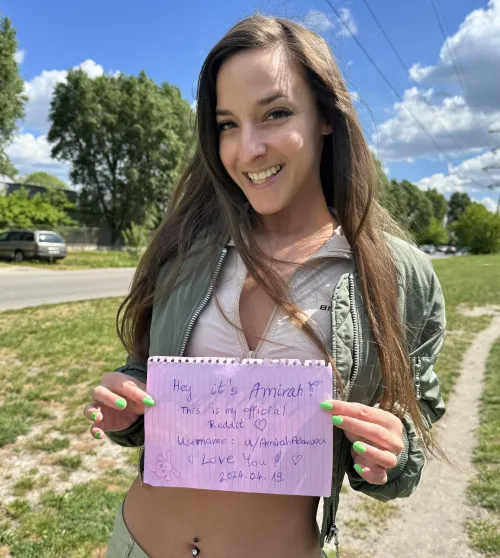 Hey it's Amirah!
This is my official
Reddit ♡
Username: u/AmirahAdaraxx
I Love You! ♡
2024.04.19.